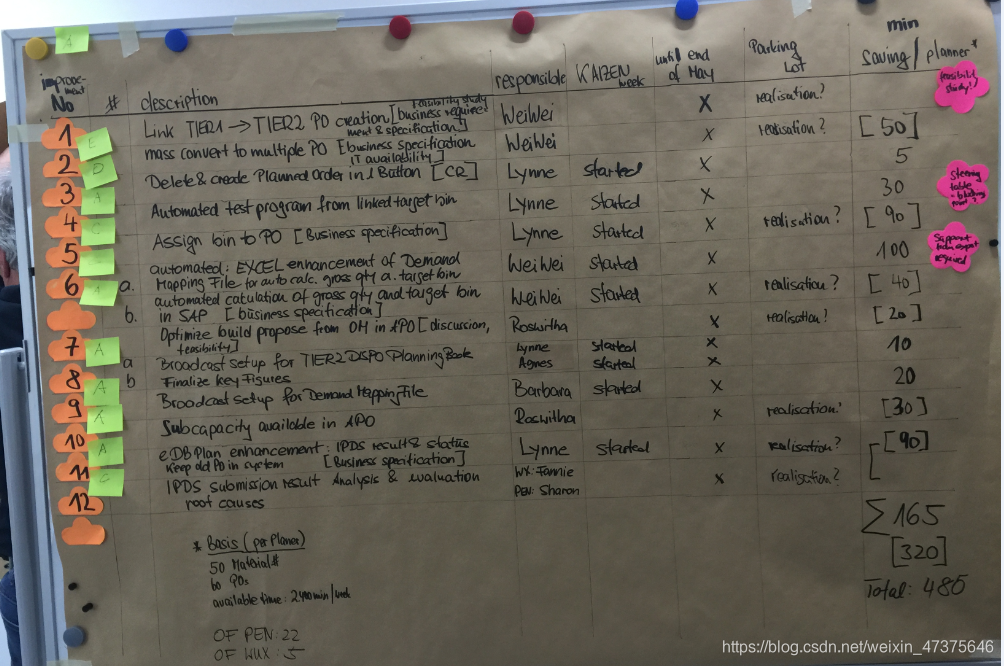 A
min
improve-ment No # description responsible KAIZEN week until end of May Parking Lot saving / planner*
feasibility study!
1 Link TIER1 → TIER2 PO creation [business requirement & specification] feasibility study WeiWei X realisation?
E mass convert to multiple PO [business specification IT availability] WeiWei X realisation? [50]
2 D Delete & create Planned Order in 1 Button [CR] Lynne started X 5
3 A Automated test program from linked target bin Lynne started X 30
4 C Assign bin to PO [Business specification] Lynne started X realisation? [90]
5 A automated: EXCEL enhancement of Demand WeiWei started X 100
6 a. Mapping File to auto calc. gross qty a. target bin
A automated calculation of gross qty and target bin WeiWei started X realisation? [40]
b. in SAP [business specification]
Optimize build propose from OH in APO [discussion, feasibility] Roswitha X realisation? [20]
7 A a Broadcast setup for TIER2 DISPO Planning Book Lynne started X 10
b Finalize key Figures Agnes started X
8 A Broadcast setup for Demand Mapping File Barbara started X 20
9 A Subcapacity available in APO Roswitha X realisation? [30]
10 A eDB Plan enhancement: IPDS result & status Lynne started X realisation? [90]
keep old PO in system [Business specification]
11 C IPDS submission result Analysis & evaluation WX: Fannie X realisation?
root causes PEN: Sharon
12
Steering table
Support required
∑ 165
[320]
Total: 485
* Basis (per Planer)
50 Material #
60 POs
available time: 2400min/week
OF PEN: 22
OF WUX: 5
https://blog.csdn.net/weixin_47375646